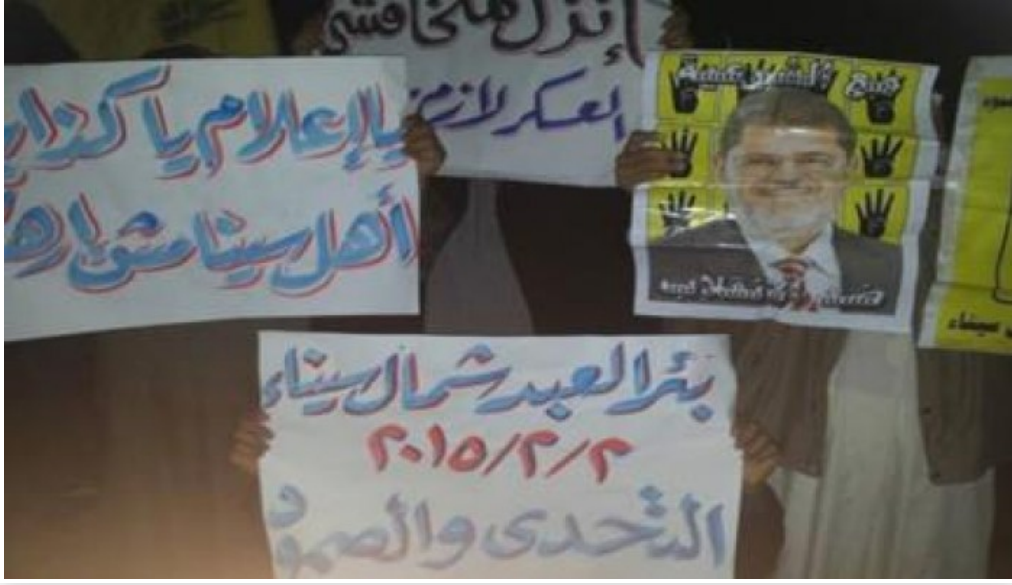 إنزل متخافشي
العسكر لازم
يا إعلام يا كذاب
أهل سينا مش إرها
مع الشرعية
بئر العبد شمال سيناء
٢٠١٥/٢/٢
التحدى والصمود
سيناء